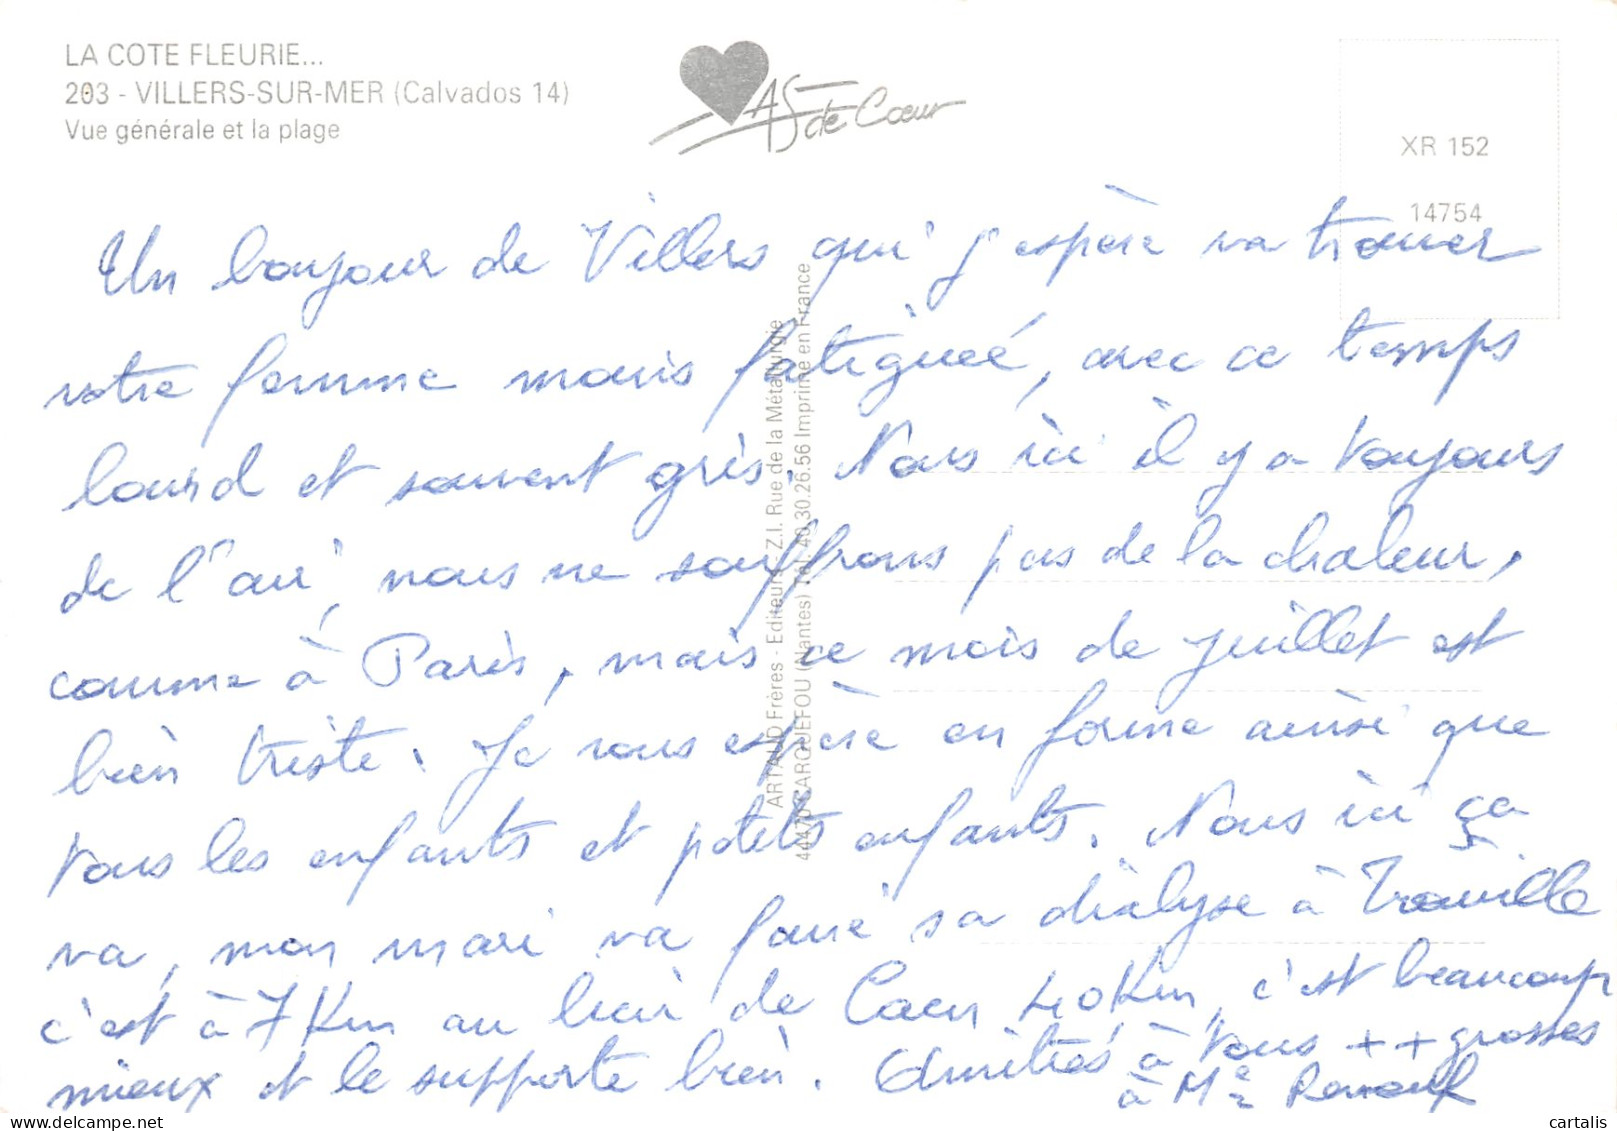 LA COTE FLEURIE...
203 - VILLERS-SUR-MER (Calvados 14)
Vue générale et la plage
AS de Cœur
XR 152
14754
Un bonjour de Villers qui j'espère va trouver
votre femme moins fatiguée, avec ce temps
lourd et souvent gris. Nous ici il y a toujours
de l'air, nous ne souffrons pas de la chaleur,
comme à Paris, mais ce mois de juillet est
bien triste. Je vous espère en forme ainsi que
tous les enfants et petits enfants. Nous ici ça
va, mon mari va faire sa dialyse à Trouville
c'est à 7 Km au lieu de Caen 40 Km, c'est beaucoup
mieux et le supporte bien. Amitiés à vous ++ grosses
à Me Renouf
ARTAUD Frères - Editeurs - Z.I. Rue de la Métallurgie
44470 CARQUEFOU (Nantes) Tél. 40.30.26.56 Imprimé en France
cartalis